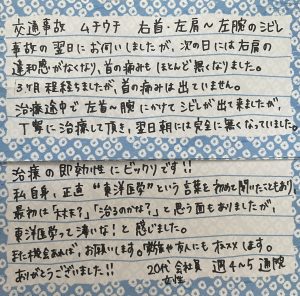 交通事故 ムチウチ 右首・左肩～左腕のシビレ
事故の翌日にお伺いしましたが、次の日には右肩の
違和感がなくなり、首の痛みもほとんど無くなりました。
3ヶ月程経ちましたが、首の痛みは出ていません。
治療途中で左首～腕にかけてシビレが出て来ましたが、
丁寧に治療して頂き、翌日朝には完全に無くなっていました。
治療の即効性にビックリです!!
私自身、正直“東洋医学”という言葉を初めて聞いたこともあり
最初は「大丈夫?」「治るのかな?」と思う面もありましたが、
東洋医学って凄いな!と感じました。
また機会あれば、お願いします。家族や友人にもオススメします。
ありがとうございました!! 20代 会社員 週4~5通院
女性